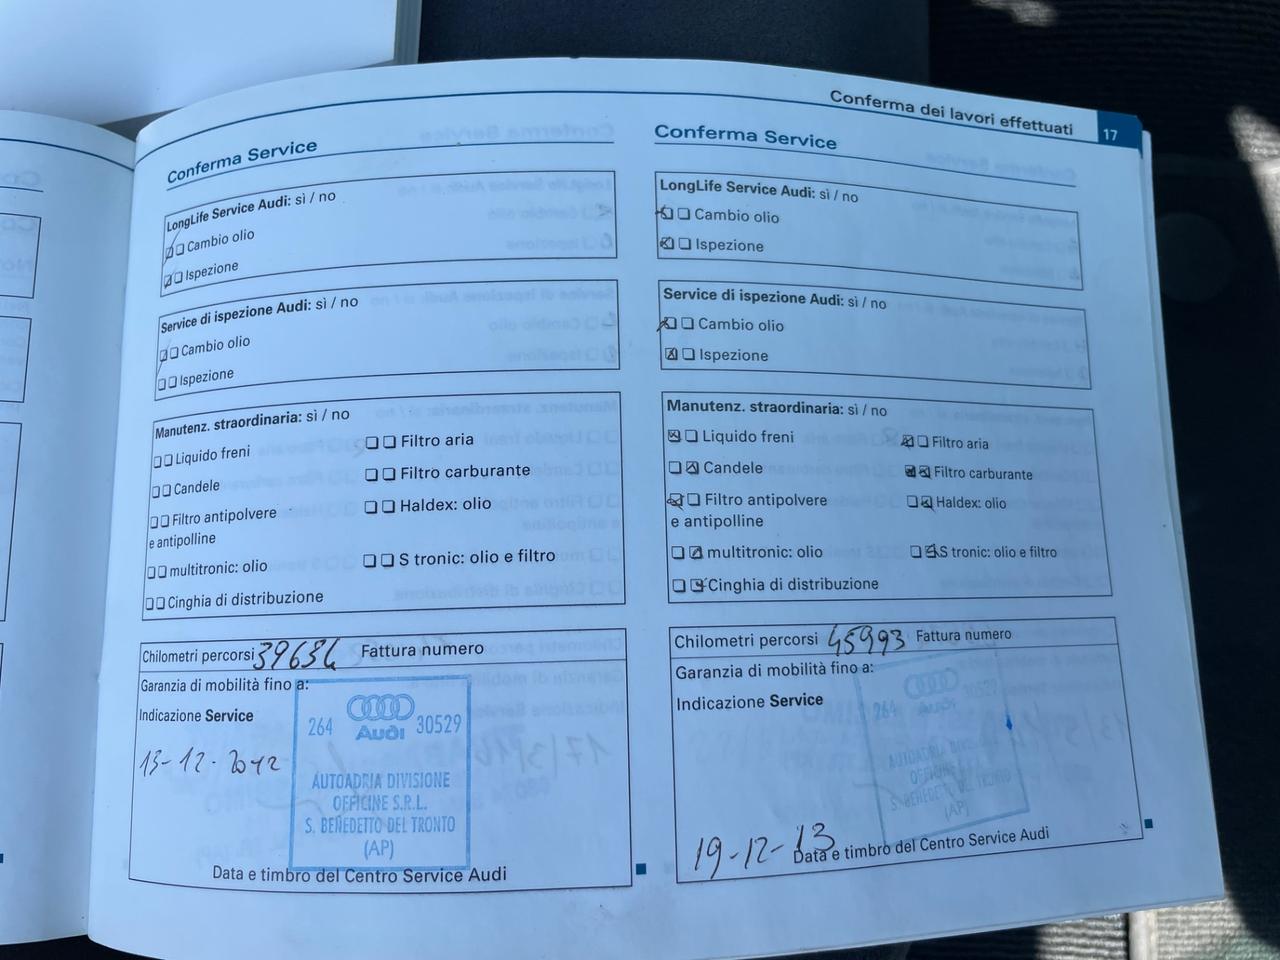 Conferma dei lavori effettuati 17
Conferma Service
LongLife Service Audi: sì / no
Cambio olio
Ispezione
Service di ispezione Audi: sì / no
Cambio olio
Ispezione
Manutenz. straordinaria: sì / no
Liquido freni
Filtro aria
Candele
Filtro carburante
Filtro antipolvere
e antipolline
Haldex: olio
multitronic: olio
S tronic: olio e filtro
Cinghia di distribuzione
Chilometri percorsi 39634 Fattura numero
Garanzia di mobilità fino a:
Indicazione Service
13-12-2012
264 Audi 30529
AUTOADRIA DIVISIONE
OFFICINE S.R.L.
S. BENEDETTO DEL TRONTO
(AP)
Data e timbro del Centro Service Audi
Conferma Service
LongLife Service Audi: sì / no
Cambio olio
Ispezione
Service di ispezione Audi: sì / no
Cambio olio
Ispezione
Manutenz. straordinaria: sì / no
Liquido freni
Filtro aria
Candele
Filtro carburante
Filtro antipolvere
e antipolline
Haldex: olio
multitronic: olio
S tronic: olio e filtro
Cinghia di distribuzione
Chilometri percorsi 45993 Fattura numero
Garanzia di mobilità fino a:
Indicazione Service
264 Audi 30529
AUTOADRIA DIVISIONE
OFFICINE S.R.L.
S. BENEDETTO DEL TRONTO
(AP)
19-12-13
Data e timbro del Centro Service Audi